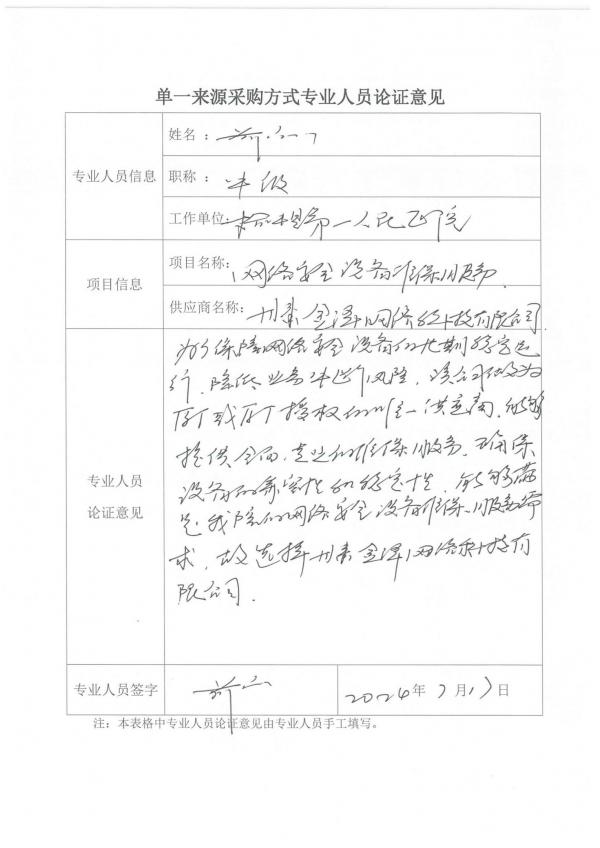 单一来源采购方式专业人员论证意见
专业人员信息
姓名：
职称：中级
工作单位：第一人民医院
项目信息
项目名称：网络安全设备维保服务
供应商名称：金泽网络科技有限公司
专业人员
论证意见
为了保障网络安全设备的长期稳定运
行，降低业务中断风险，该公司作为
原厂或原厂授权的唯一供应商，能够
提供全面、专业的维保服务，确保
设备的兼容性和稳定性，能够满
足我院的网络安全设备维保服务需
求，故选择金泽网络科技有
限公司．
专业人员签字
2024年7月17日
注：本表格中专业人员论证意见由专业人员手工填写。